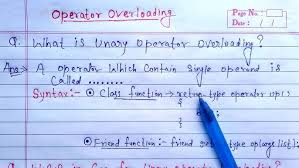 Operator Overloading
Page No.:
Date: / /
Q. What is Unary Operator Overloading?
Ans → A operator Which Contain Single operend is
Called ........
Syntax:- ⊙ Class function → return type operator op()
{
}
⊙ friend function:- friend type op(args list);